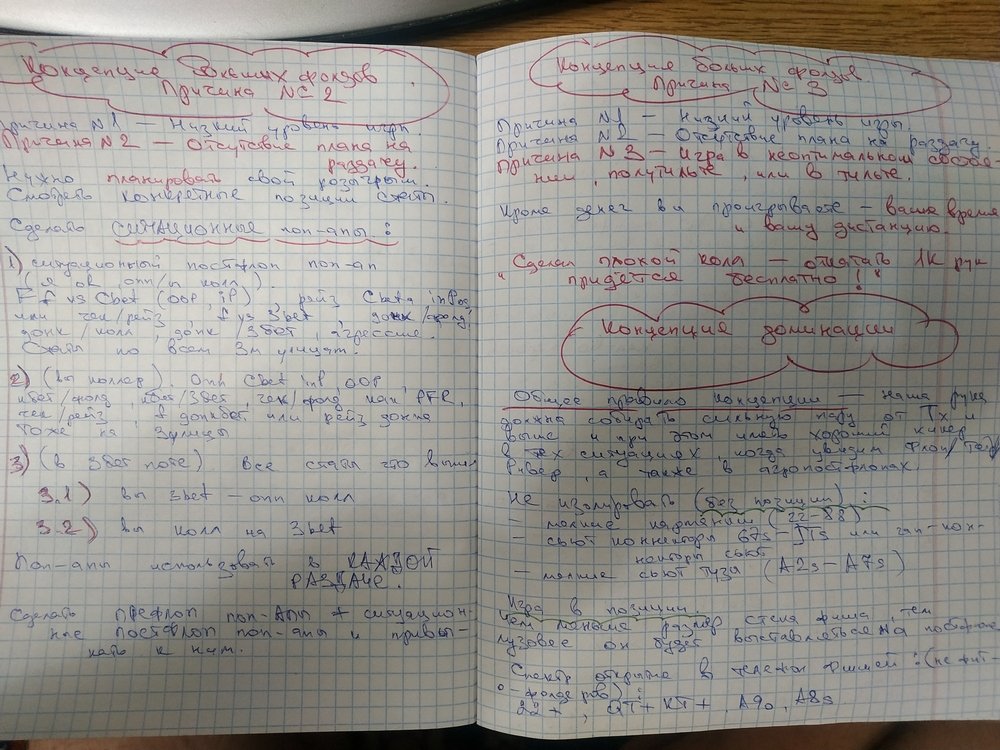 Концепция больших фондов
Причина №2
Причина №1 — Низкий уровень игры.
Причина №2 — Отсутствие плана на
раздачу.
Нужно планировать свой розыгрыш.
Смотреть конкретные позиции статы.
Сделать ситуационные поп-апы :
1) ситуационный постфлоп поп-ап
(я ок, опп/ы колл).
F vs Cbet (OOP, iP), рейз Cbeta
или чек/рейз, f vs 3bet, донк/фолд,
донк/колл, донк/3бет, агрессия.
Статы по всем 3м улицам.
2) (вы коллер). Опп Cbet inP, OOP,
цбет/фолд, цбет/3бет, чек/фолд как PFR,
чек/рейз, f донкбет или рейз донка
тоже на 3 улицы
3) (в 3бет поте) Все статы что выше
3.1) вы 3bet — опп колл
3.2) вы колл на 3bet
Поп-апы использовать в КАЖДОЙ
РАЗДАЧЕ.
Сделать префлоп поп-апы + ситуацион-
ные постфлоп поп-апы и привы-
кать к ним.
Концепция больших фондов.
Причина №3
Причина №1 — Низкий уровень игры.
Причина №2 — Отсутствие плана на раздачу.
Причина №3 — Игра в неоптимальном состоя-
нии, полутильте, или в тильте.
Кроме денег вы проигрываете — ваше время
и вашу дистанцию.
"Сделал плохой колл — откатать 1К рук
придётся бесплатно!"
Концепция доминации
Общее правило концепции — наша рука
должна собирать сильную пару от Tx и
выше и при этом иметь хороший кикер
в тех ситуациях, когда увидим Флоп/Терн/
Ривер, а также в агропостфлопах.
Не изолировать (без позиции) :
— мелкие карманки (22-88)
— сьют коннекторы 67s-JTs или гап-кон-
некторы сьют
— мелкие сьют тузы (A2s-A7s)
Игра в позиции.
Чем меньше размер стека фиша, тем
лузовее он будет выставляться на постфлопе
Спектр открытие в телефон фишей : (не фит-
о-фолдеров) :
22+, QT+ KT+, A9o, A8s